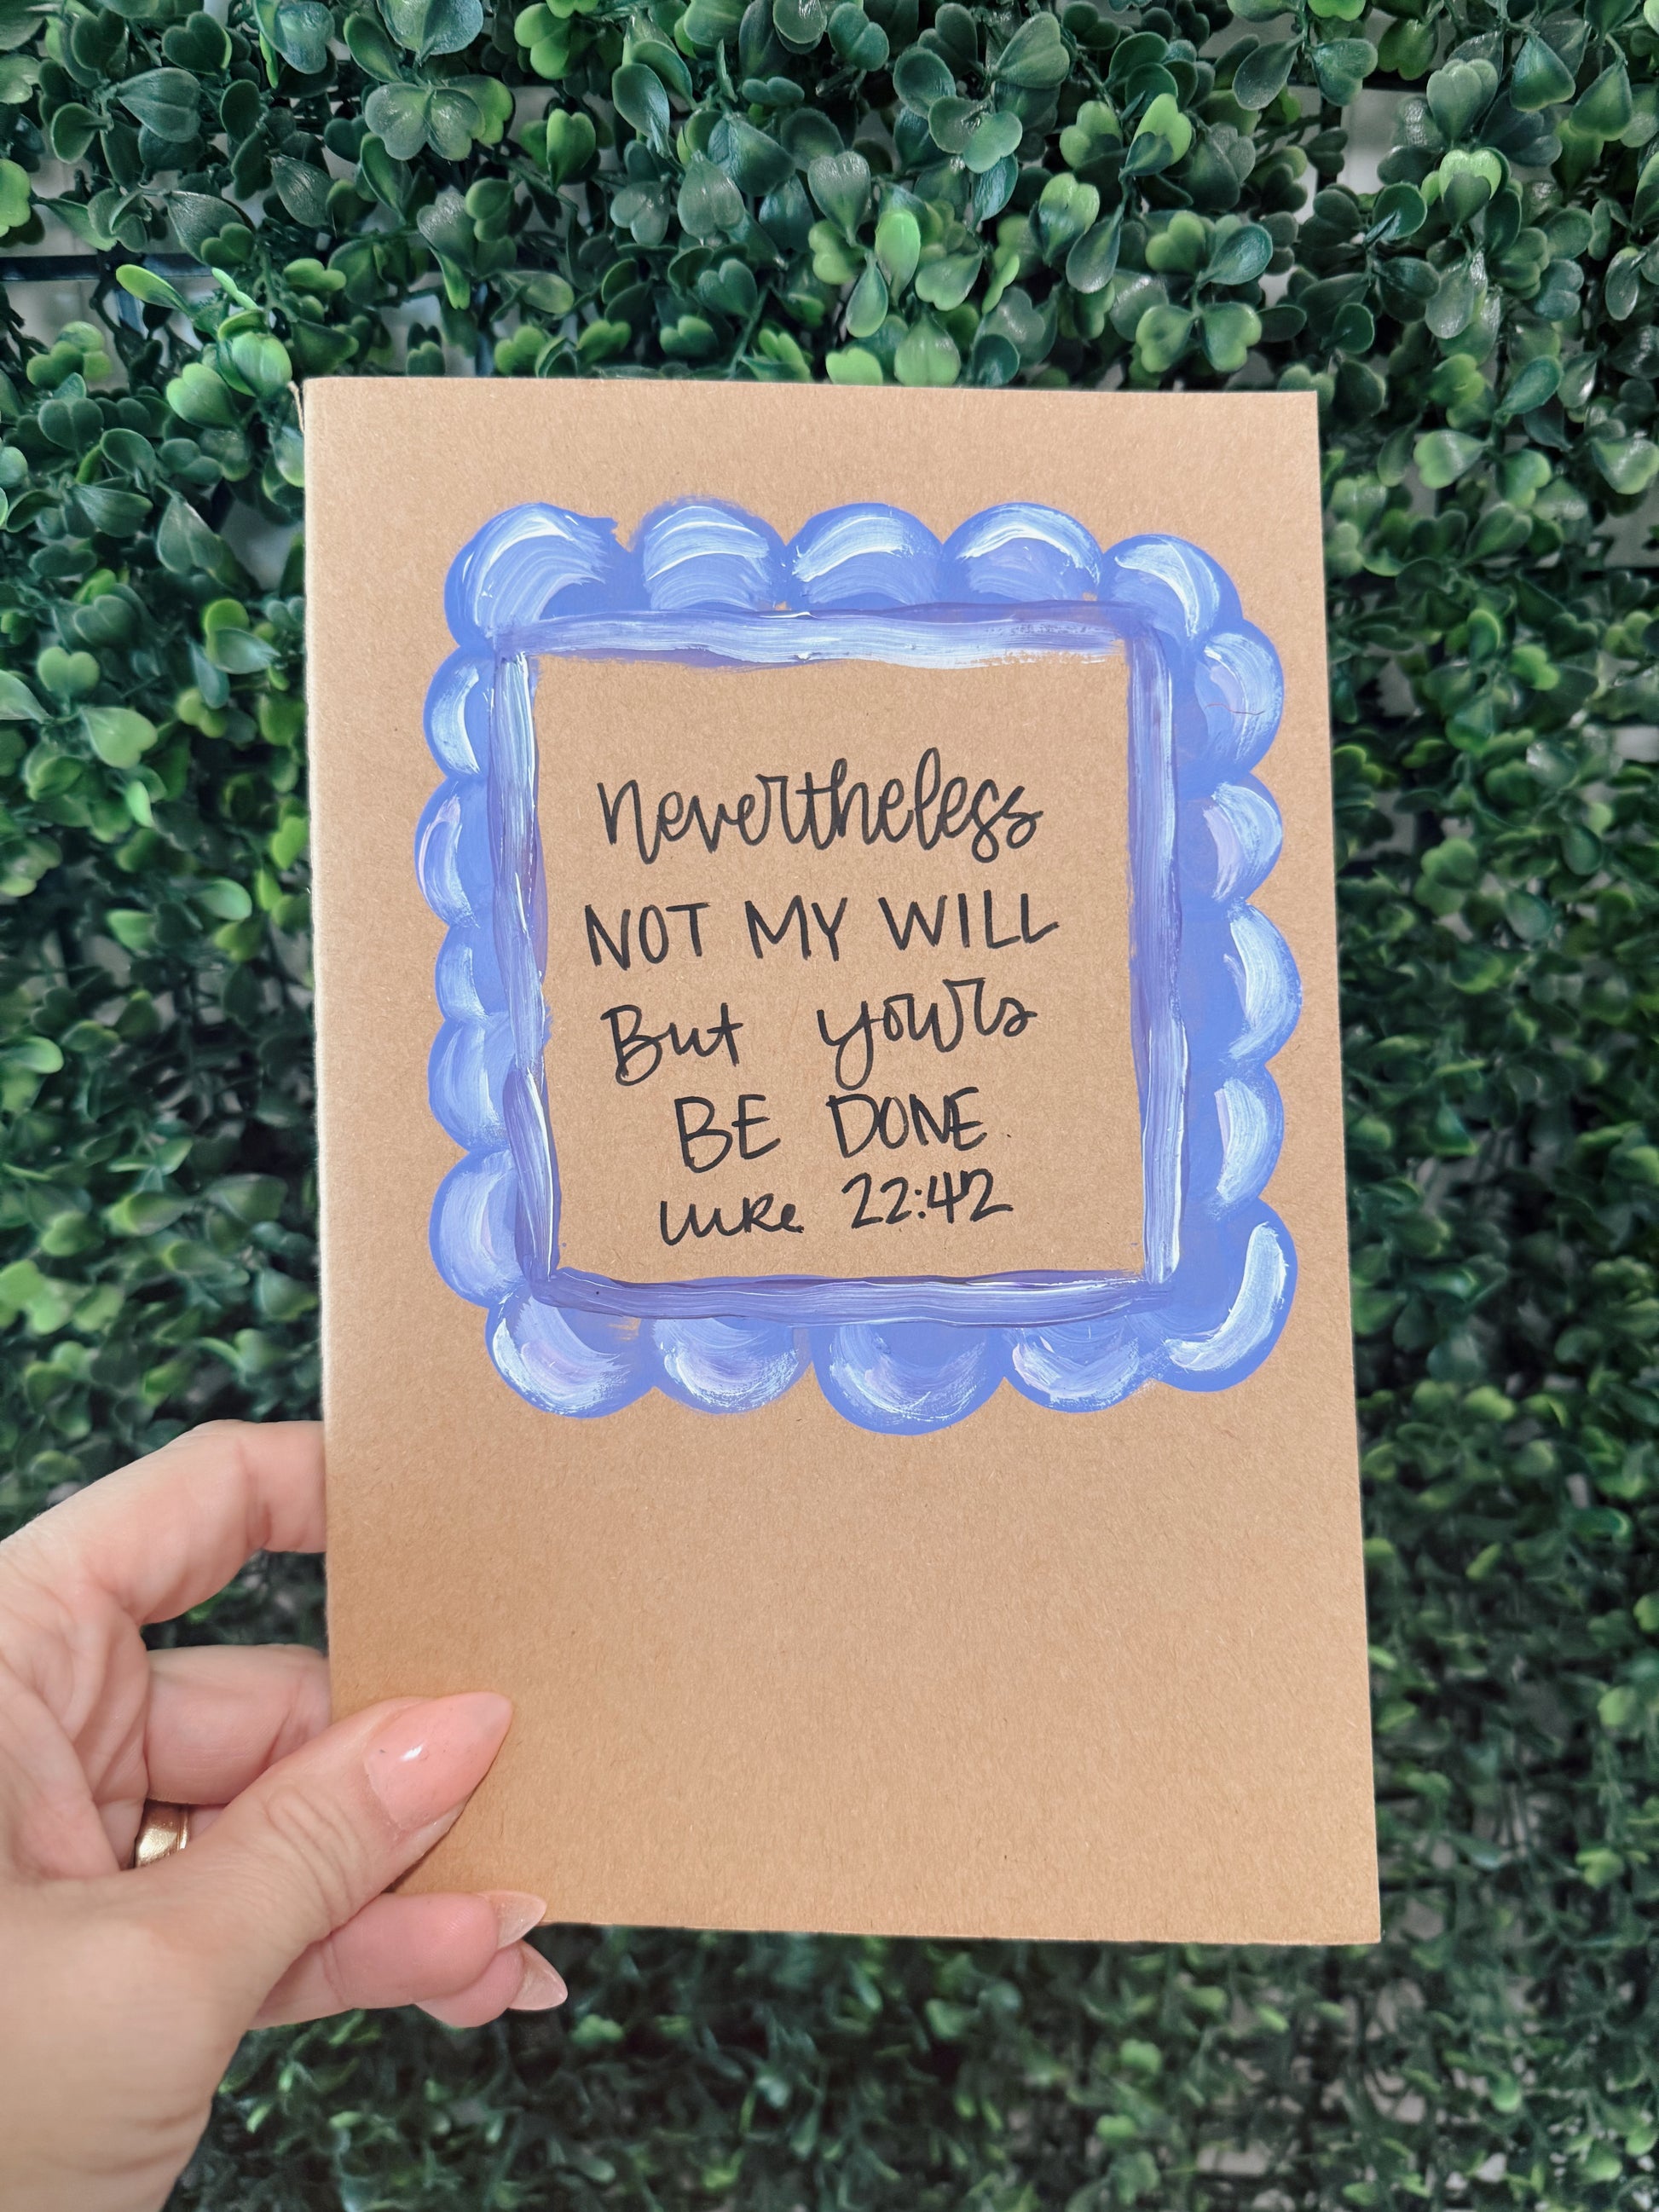 Nevertheless
NOT MY WILL
But yours
BE DONE
Luke 22:42